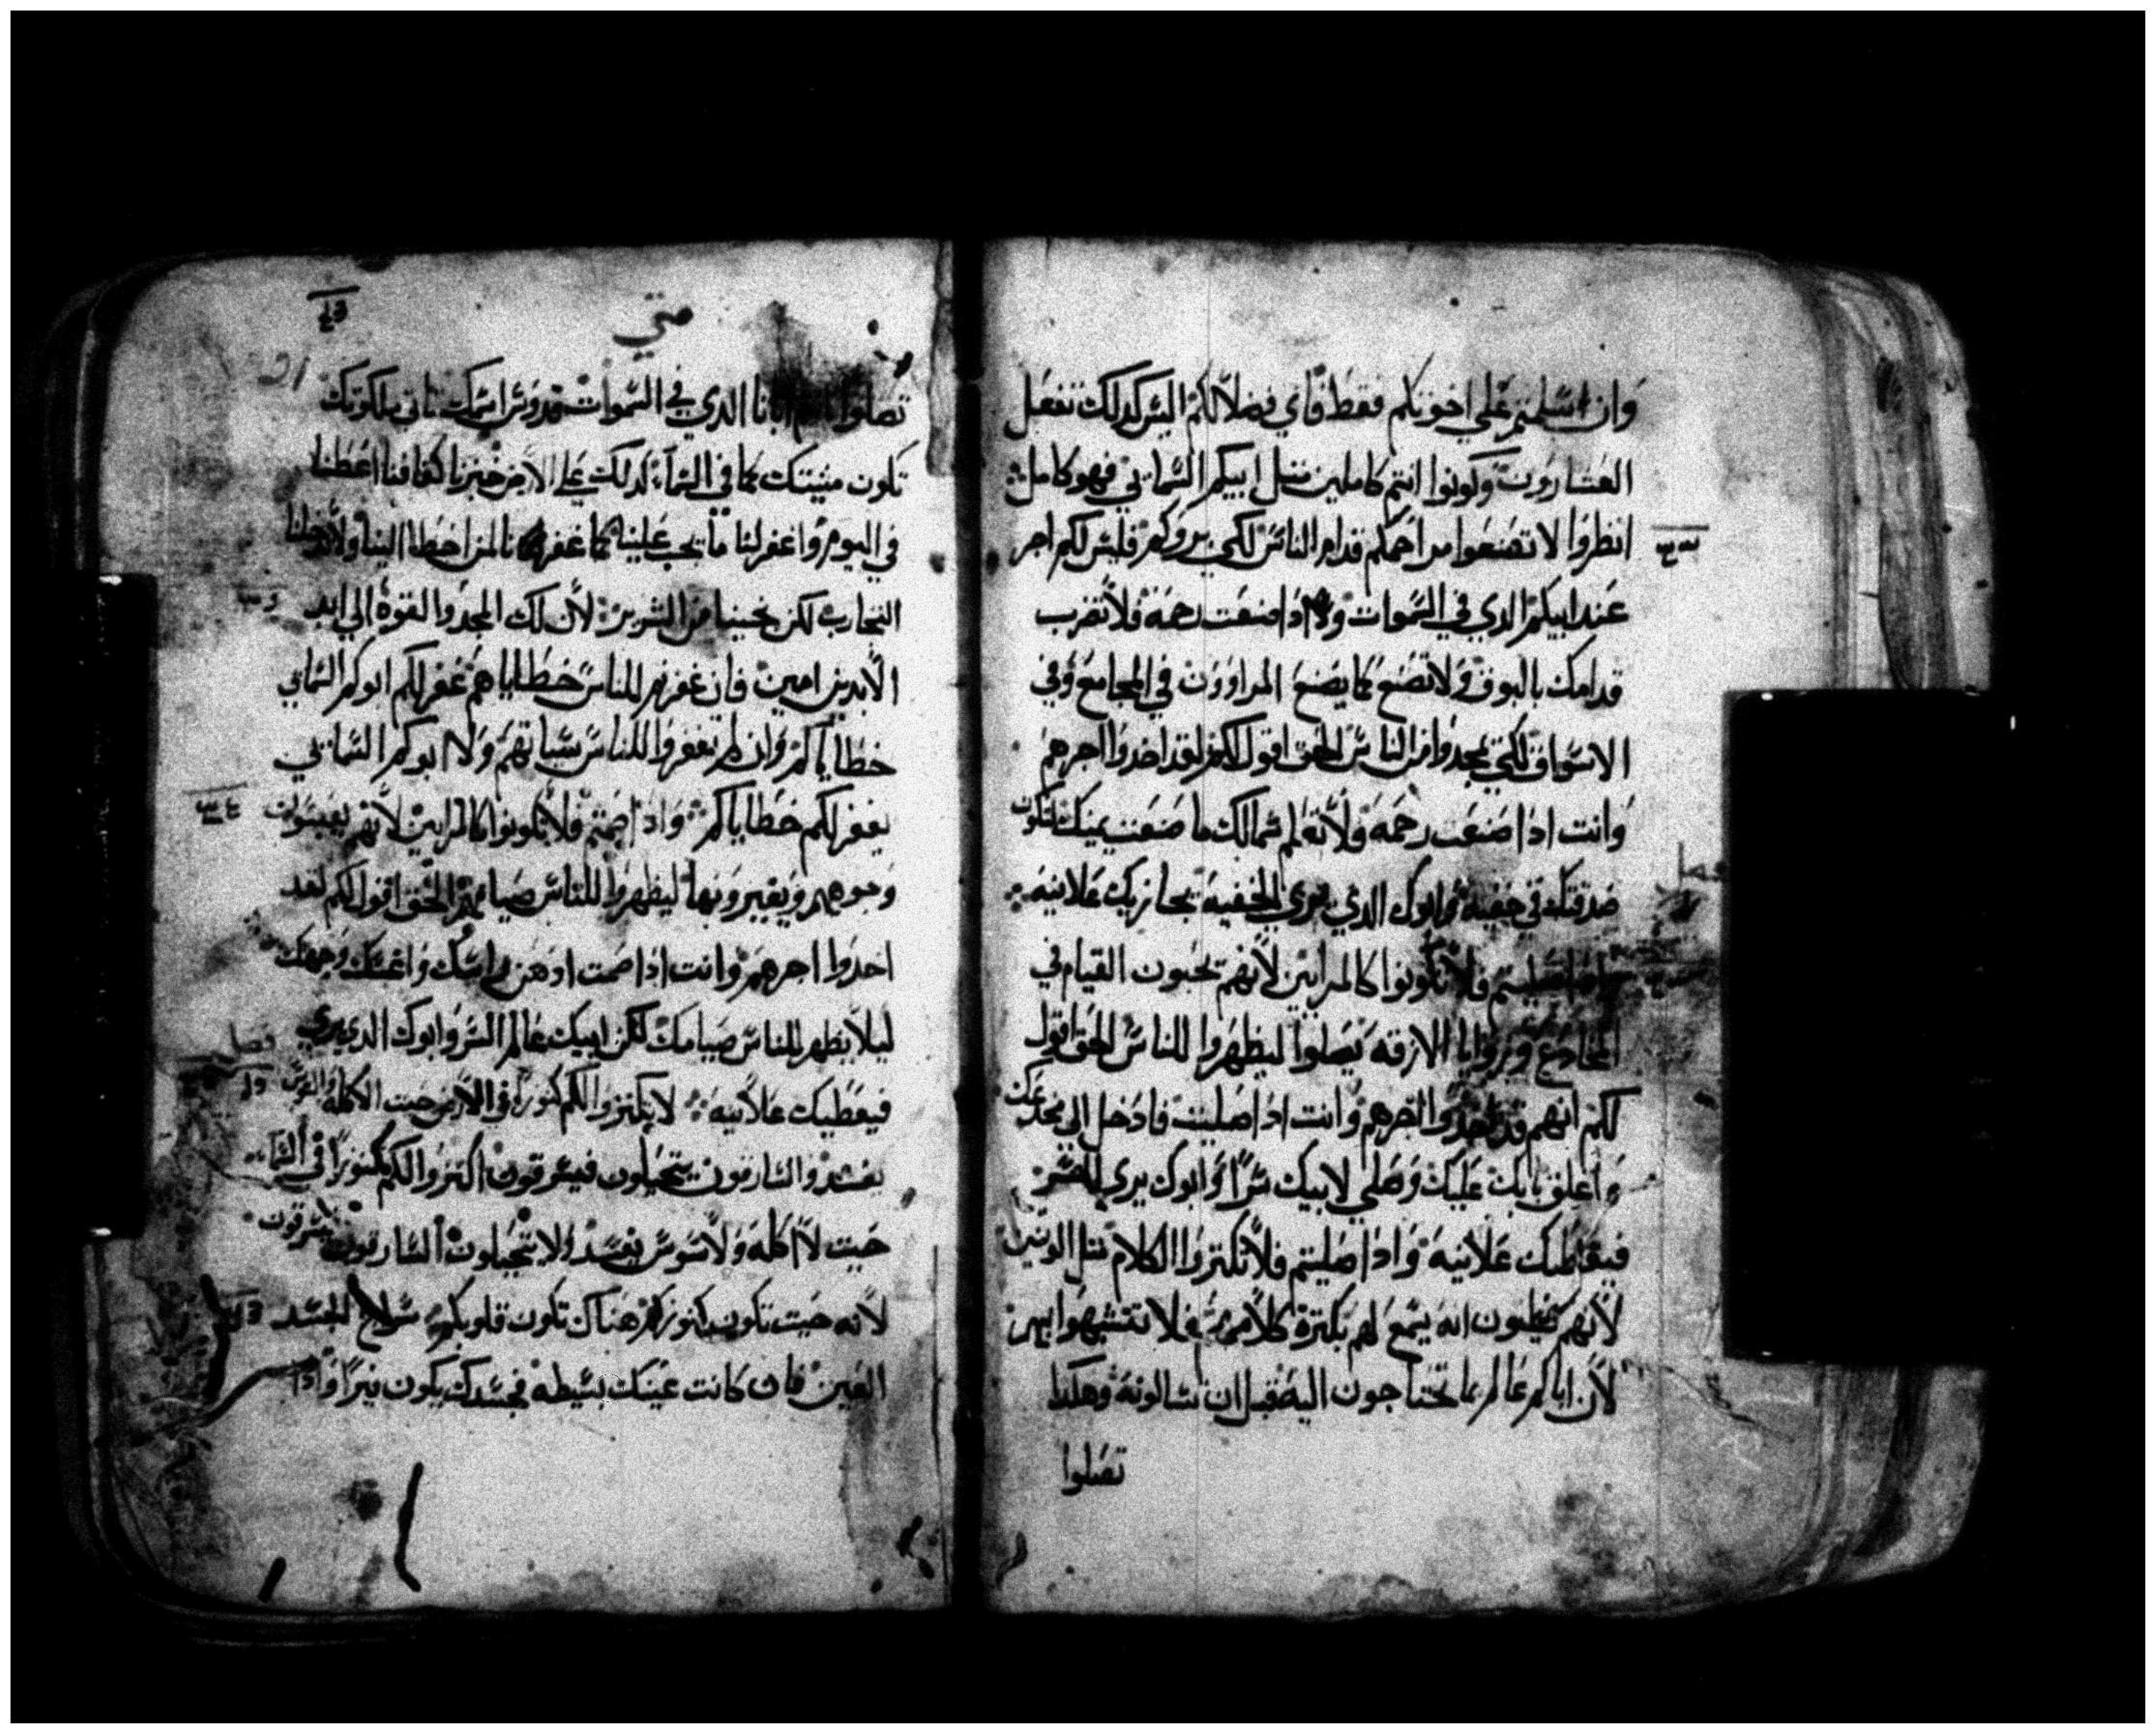 وان سلمتم علي اخوتكم فقط فاي فضلا لكم اليس كدلك تفعل
العشارون وكونوا انتم كاملين متل ابيكم السماني فهو كامل
انظروا لا تصنعوا مراحمكم قدام الناس لكي يروكم فليس لكم اجر
عند ابيكم الدي في السموات وادا صنعت رحمة فلا تضرب
قدامك بالبوق ولا تصنع كما يصنع المراوون في المجامع وفي
الاسواق لكي يمجدوا من الناس الحق اقول لكم لقد اخدوا اجرهم
وانت ادا صنعت رحمه ولا تعلم شمالك ما صنعت يمينك لتكون
صدقتك في خفيه وابوك الدي يري الخفيه يجازيك علانيه
فصل
وادا صليتم فلا تكونوا كالمرايين لانهم يحبون القيام في
المخادع وزوايا الازقه يصلوا ليظهروا للناس الحق اقول
لكم انهم قد اخدوا اجرهم وانت ادا صليت فادخل الي مخدعك
واغلق بابك عليك وصلي لابيك سرا وابوك يري السر
فيعطيك علانيه وادا صليتم فلا تكتروا الكلام متل الوتنين
لانهم يظنون انه يسمع لهم بكترة كلامهم فلا تتشبهوا بهم
لان اباكم عالم بما تحتاجون اليه قبل ان تسالونه وهكدا
تصلوا
متي
21
تصلوا ابانا الدي في السموات قدوس اسمك تاتي ملكوتك
تكون مشيتك كما في السماء كدلك علي الارض خبزنا كفافنا اعطنا
في اليوم واغفر لنا ما يجب علينا كما غفرنا لمن اخطا الينا ولا تدخلنا
التجارب لكن نجينا من الشرير لان لك المجد والقوة الي ابد
الابدين امين فان غفرتم للناس خطاياهم غفر لكم ابوكم السماني
خطاياكم وان لم تغفروا للناس سياتهم ولا ابوكم السماني
يغفر لكم خطاياكم وادا صمتم فلا تكونوا كالمرايين لانهم يعبسون
وجوههم ويغيرونها ليظهروا للناس صيامهم الحق اقول لكم لقد
اخدوا اجرهم وانت ادا صمت ادهن راسك واغسل وجهك
ليلا يظهر للناس صيامك لكن ابيك عالم السر وابوك الدي يري
فصل
فيعطيك علانيه لا يكنزوا لكم كنوزا في الارض حيت الاكله والسوس
يفسد والسارقون يتحيلون فيسرقون اكنزوا لكم كنوزا في السماء
حيت لا اكله ولا سوس يفسد ولا يتحيلون السارقون فيسرقون
لانه حيت تكون كنوزكم هناك تكون قلوبكم سراج الجسد
العين فان كانت عينك بسيطه فجسدك يكون نيرا وادا